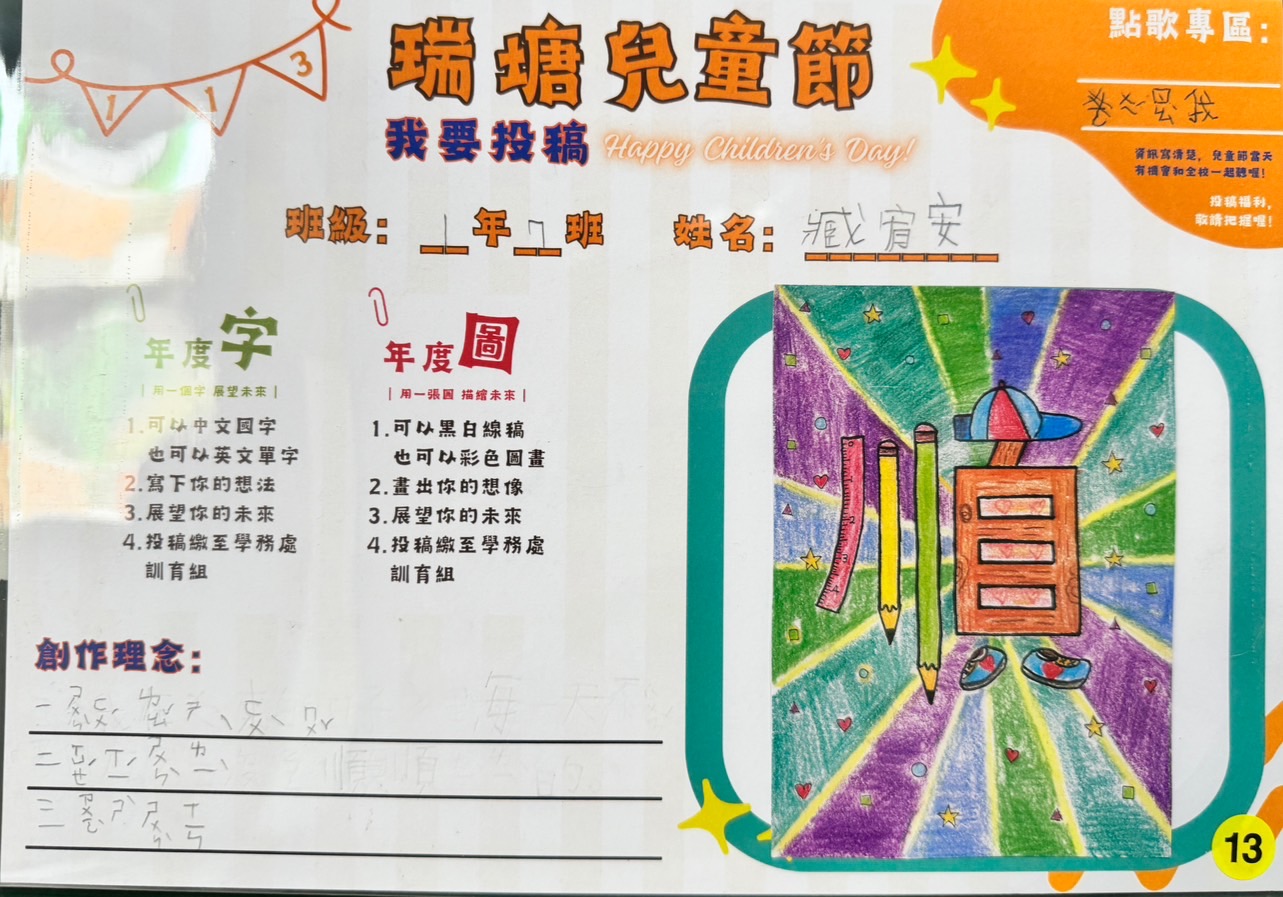 113
瑞塘兒童節
我要投稿 Happy Children's Day!
點歌專區:
資訊寫清楚,兒童節當天
有機會和全校一起聽喔!
投稿福利,
敬請把握喔!
班級: 1年7班 姓名: 臧宥安
年度字
| 用一個字 展望未來 |
1.可以中文國字
也可以英文單字
2.寫下你的想法
3.展望你的未來
4.投稿繳至學務處
訓育組
年度圖
| 用一張圖 描繪未來 |
1.可以黑白線稿
也可以彩色圖畫
2.畫出你的想像
3.展望你的未來
4.投稿繳至學務處
訓育組
創作理念:
一
二
三
13